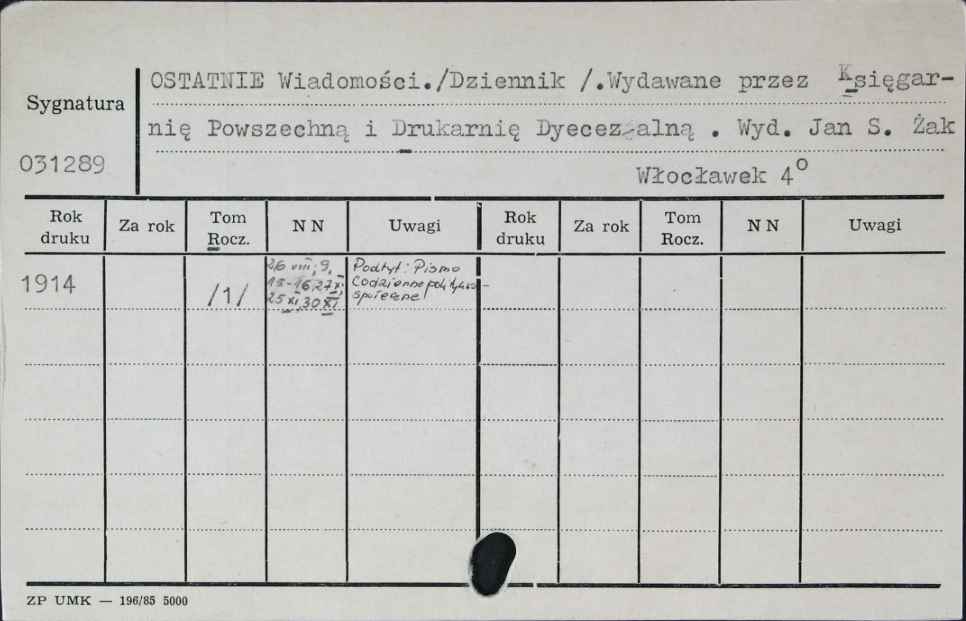 OSTATNIE Wiadomości./Dziennik /.Wydawane przez Księgar-
Sygnatura
nię Powszechną i Drukarnię Dyecezalną . Wyd. Jan S. Żak
031289
Włocławek 4°
Rok druku Za rok Tom Rocz. NN Uwagi Rok druku Za rok Tom Rocz. NN Uwagi
1914 /1/
26 VIII, 9,
27 XI,
25 XI, 30 XI
Podtyt: Pismo
Codzienne polityczno-
społeczne
ZP UMK — 196/85 5000